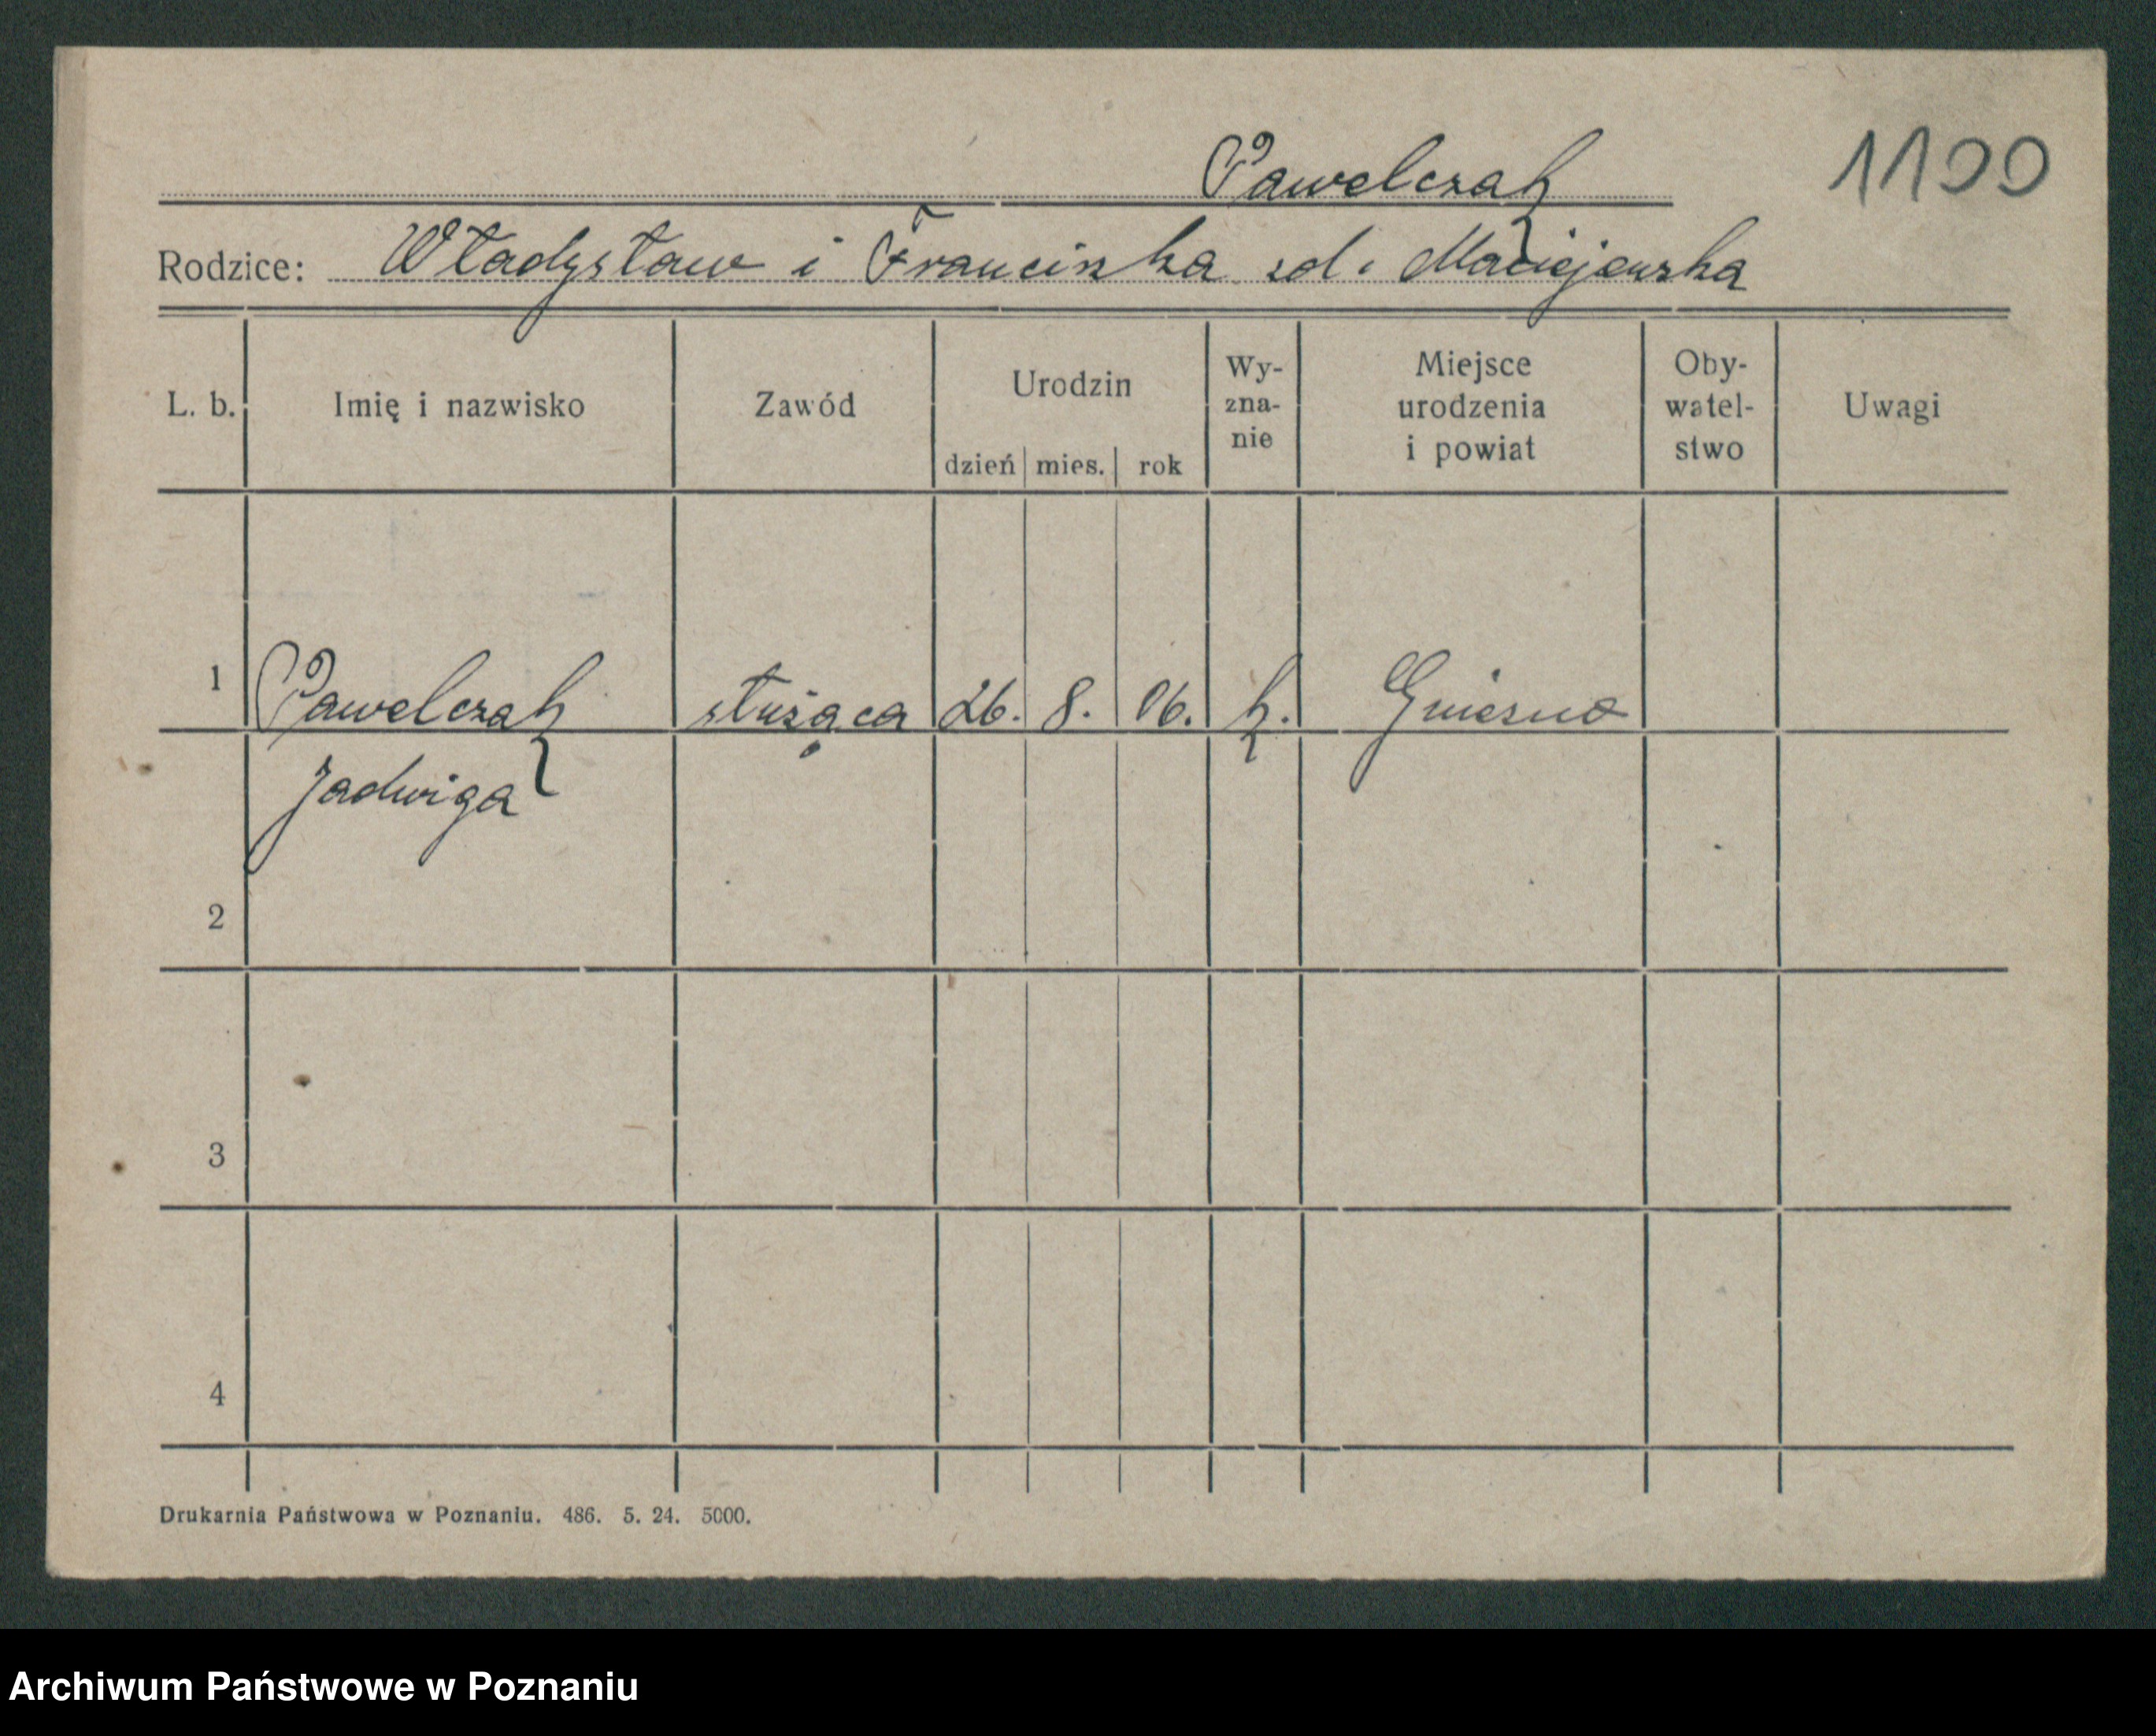 Pawelczak
1100
Rodzice: Władysław i Franciszka zd. Maciejewska
L. b. Imię i nazwisko Zawód Urodzin dzień mies. rok Wy-zna-nie Miejsce urodzenia i powiat Oby-watel-stwo Uwagi
1 Pawelczak służąca 26. 8. 06. k. Gniezno
Jadwiga
2
3
4
Drukarnia Państwowa w Poznaniu. 486. 5. 24. 5000.
Archiwum Państwowe w Poznaniu